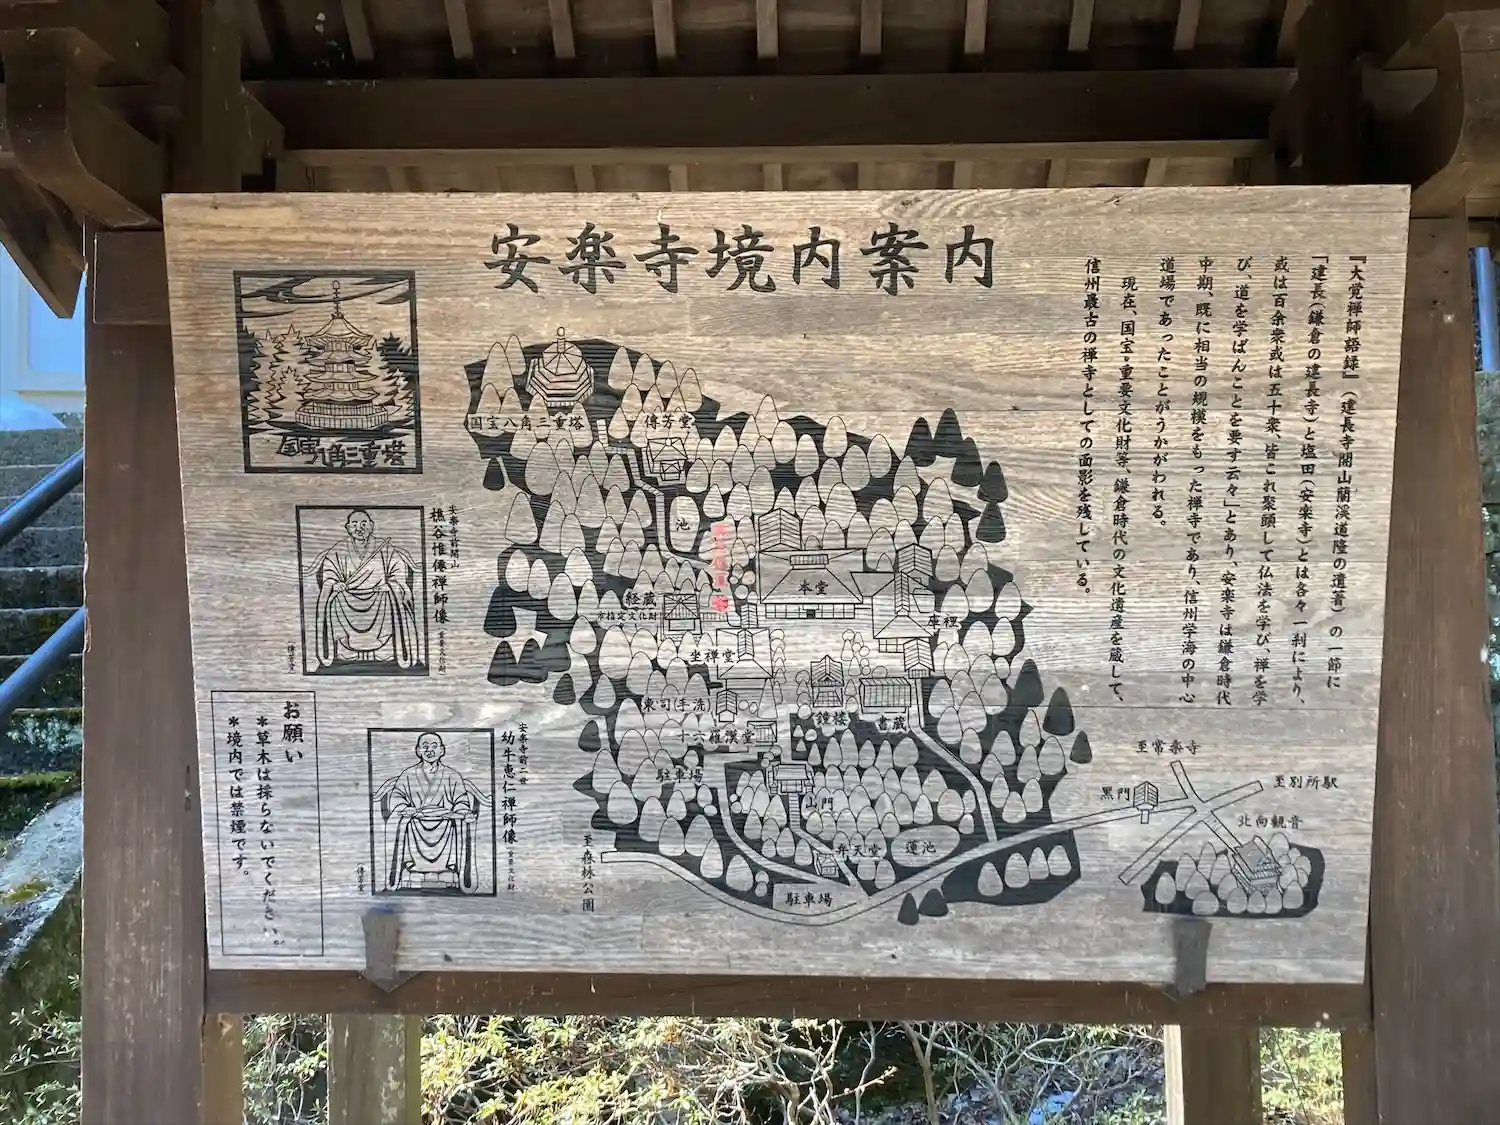 安楽寺境内案内
『大覚禅師語録』(建長寺開山蘭溪道隆の遺著)の一節に
「建長(鎌倉の建長寺)と塩田(安楽寺)とは各々一刹により、
或は百余衆或は五十衆、皆これ聚頭して仏法を学び、禅を学
び、道を学ばんことを要す云々」とあり、安楽寺は鎌倉時代
中期、既に相当の規模をもった禅寺であり、信州学海の中心
道場であったことがうかがわれる。
現在、国宝・重要文化財等、鎌倉時代の文化遺産を蔵して、
信州最古の禅寺としての面影を残している。
国宝八角三重塔
安楽寺前開山
樵谷惟僊禅師像
(重要文化財)
(傳芳堂)
安楽寺前二世
幼牛恵仁禅師像
重要文化財
(傳芳堂
お願い
*草木は採らないでください。
*境内では禁煙です。
国宝八角三重塔
傳芳堂
池
本堂
経蔵
市指定文化財
庫裡
坐禅堂
東司(手洗)
鐘楼
書蔵
十六羅漢堂
駐車場
山門
弁天堂
蓮池
駐車場
至森林公園
至常楽寺
黒門
至別所駅
北向観音